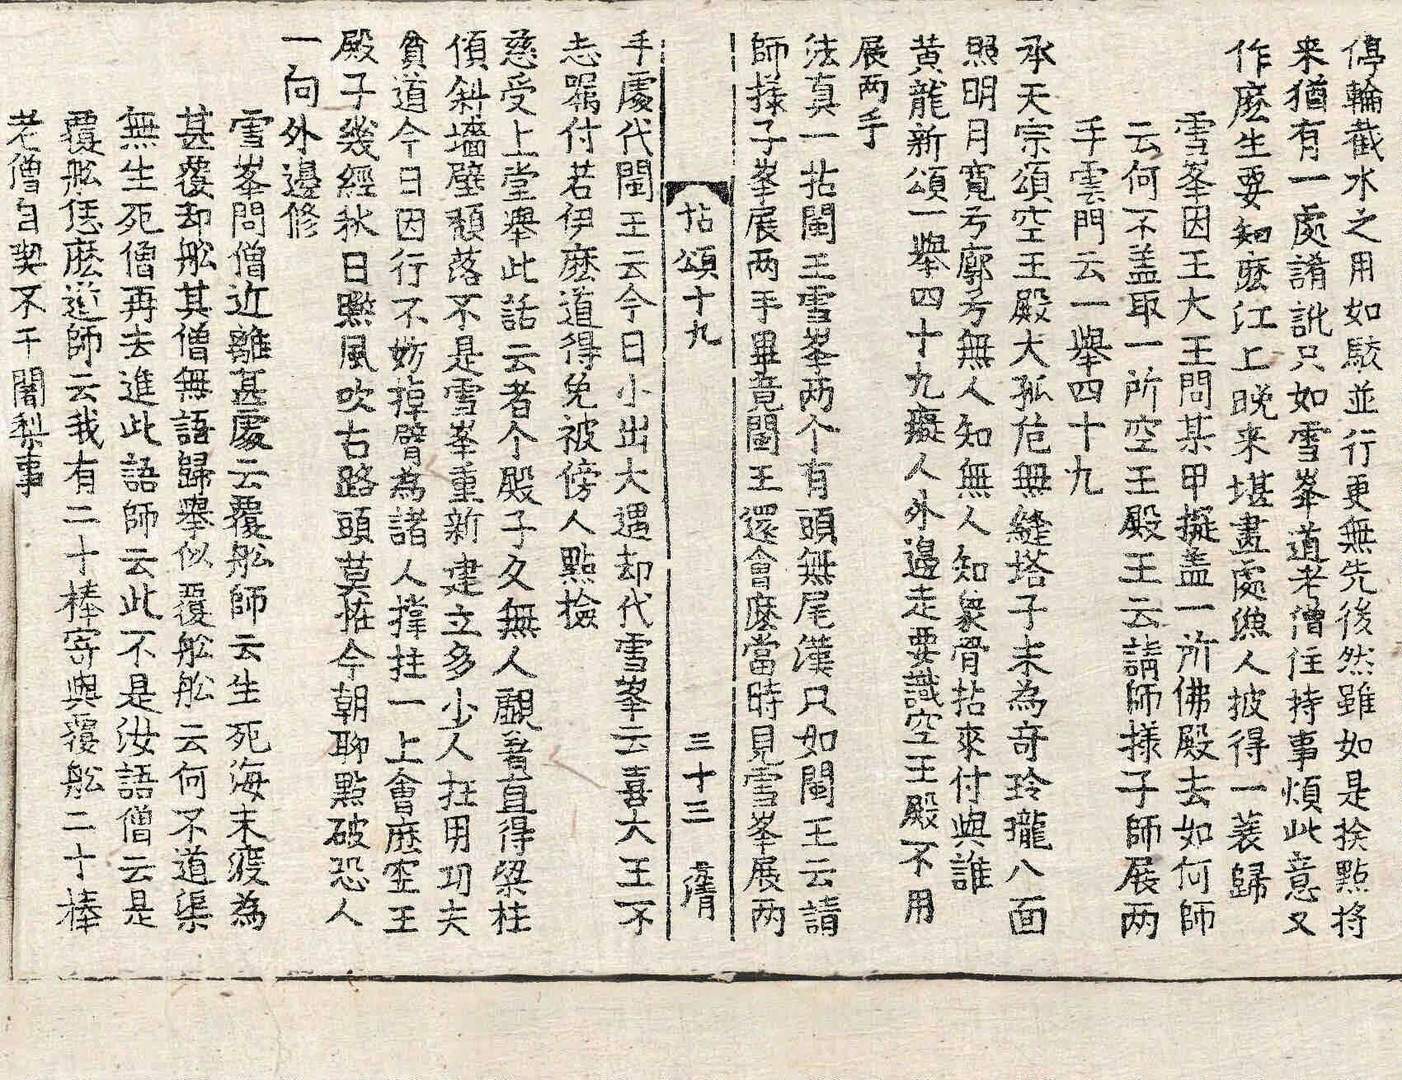 停輪截水之用如駿並行更無先後然雖如是捡點将
来猶有一處誵訛只如雪峯道老僧住持事煩此意又
作麽生要知麽江上晚来堪畫處漁人披得一蓑歸
雪峯因王大王問某甲擬盖一所佛殿去如何師
云何不盖取一所空王殿王云請師樣子師展两
手雲門云一舉四十九
承天宗頌空王殿大孤危無縫塔子未為竒玲瓏八面
照明月寛兮廓兮無人知無人知衆骨拈來付與誰
黄龍新頌一舉四十九癡人外邊走要識空王殿不用
展两手
法真一拈閩王雪峯两个有頭無尾漢只如閩王云請
師㨾子峯展两手畢竟閩王還會麽當時見雪峯展两
拈頌十九 三十三
手處代閩王云今日小出大遇却代雪峯云喜大王不
忘囑付若伊麽道得免被傍人點撿
慈受上堂舉此話云者个殿子久無人覷著直得梁柱
傾斜墻壁頽落不是雪峯重新建立多少人狂用功夫
貧道今日因行不妨掉臂為諸人撑拄一上會麽空王
殿子幾經秋日㸃風吹古路頭莫恠今朝聊點破恐人
一向外邊修
雪峯問僧近離甚處云覆舩師云生死海未渡為
甚覆却舩其僧無語歸舉似覆舩舩云何不道渠
無生死僧再去進此語師云此不是汝語僧云是
覆舩恁麽道師云我有二十棒寄與覆舩二十棒
老僧自喫不干闍梨事